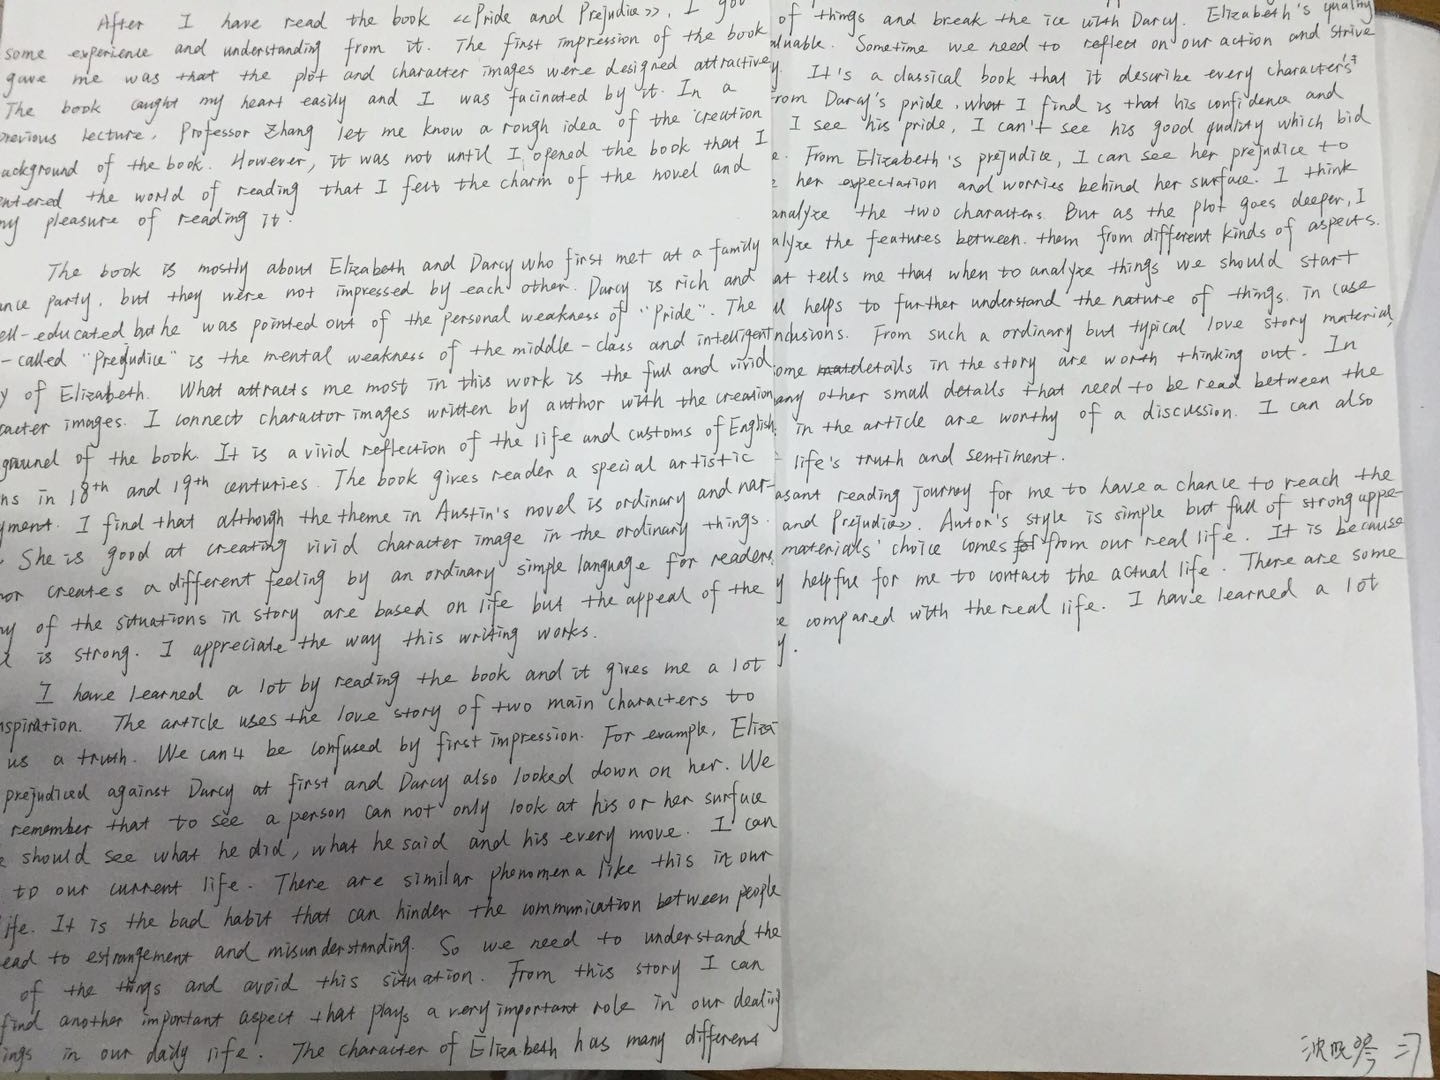 After I have read the book <<Pride and Prejudice>>, I got
some experience and understanding from it. The first impression of the book
gave me was that the plot and character images were designed attractive
The book caught my heart easily and I was facinated by it. In a
previous lecture, Professor Zhang let me know a rough idea of the creation
background of the book. However, it was not until I opened the book that I
entered the world of reading that I felt the charm of the novel and
my pleasure of reading it.
The book is mostly about Elizabeth and Darcy who first met at a family
ance party, but they were not impressed by each other. Darcy is rich and
ell-educated but he was pointed out of the personal weakness of "Pride". The
-called "Prejudice" is the mental weakness of the middle-class and intelligent
y of Elizabeth. What attracts me most in this work is the full and vivid
racter images. I connect charactor images written by author with the creation
ground of the book. It is a vivid reflection of the life and customs of English
ns in 18th and 19th centuries. The book gives reader a special artistic
yment. I find that although the theme in Austin's novel is ordinary and nar-
. She is good at creating vivid character image in the ordinary things.
hor creates a different feeling by an ordinary simple language for readers
ny of the situations in story are based on life but the appeal of the
is strong. I appreciate the way this writing works.
I have learned a lot by reading the book and it gives me a lot
nspiration. The article uses the love story of two main characters to
us a truth. We can't be confused by first impression. For example, Eliza
prejudiced against Darcy at first and Darcy also looked down on her. We
remember that to see a person can not only look at his or her surface
e should see what he did, what he said and his every move. I can
to our current life. There are similar phenomena like this in our
life. It is the bad habit that can hinder the communication between people
ead to estrangement and misunderstanding. So we need to understand the
of the things and avoid this situation. From this story I can
find another important aspect that plays a very important role in our dealing
ings in our daily life. The character of Elizabeth has many different
of things and break the ice with Darcy. Elizabeth's quality
aluable. Sometime we need to reflect on our action and strive
y. It's a classical book that it describe every character's
rom Darcy's pride, what I find is that his confidence and
I see his pride, I can't see his good quality which bid
e. From Elizabeth's prejudice, I can see her prejudice to
her expectation and worries behind her surface. I think
analyze the two characters. But as the plot goes deeper, I
alyze the features between them from different kinds of aspects.
at tells me that when to analyze things we should start
ll helps to further understand the nature of things in case
nclusions. From such a ordinary but typical love story material,
some details in the story are worth thinking out. In
any other small details that need to be read between the
in the article are worthy of a discussion. I can also
life's truth and sentiment.
asant reading journey for me to have a chance to reach the
and Prejudice>>. Autor's style is simple but full of strong appe-
materials' choice comes from our real life. It is because
y helpful for me to contact the actual life. There are some
e compared with the real life. I have learned a lot
y.